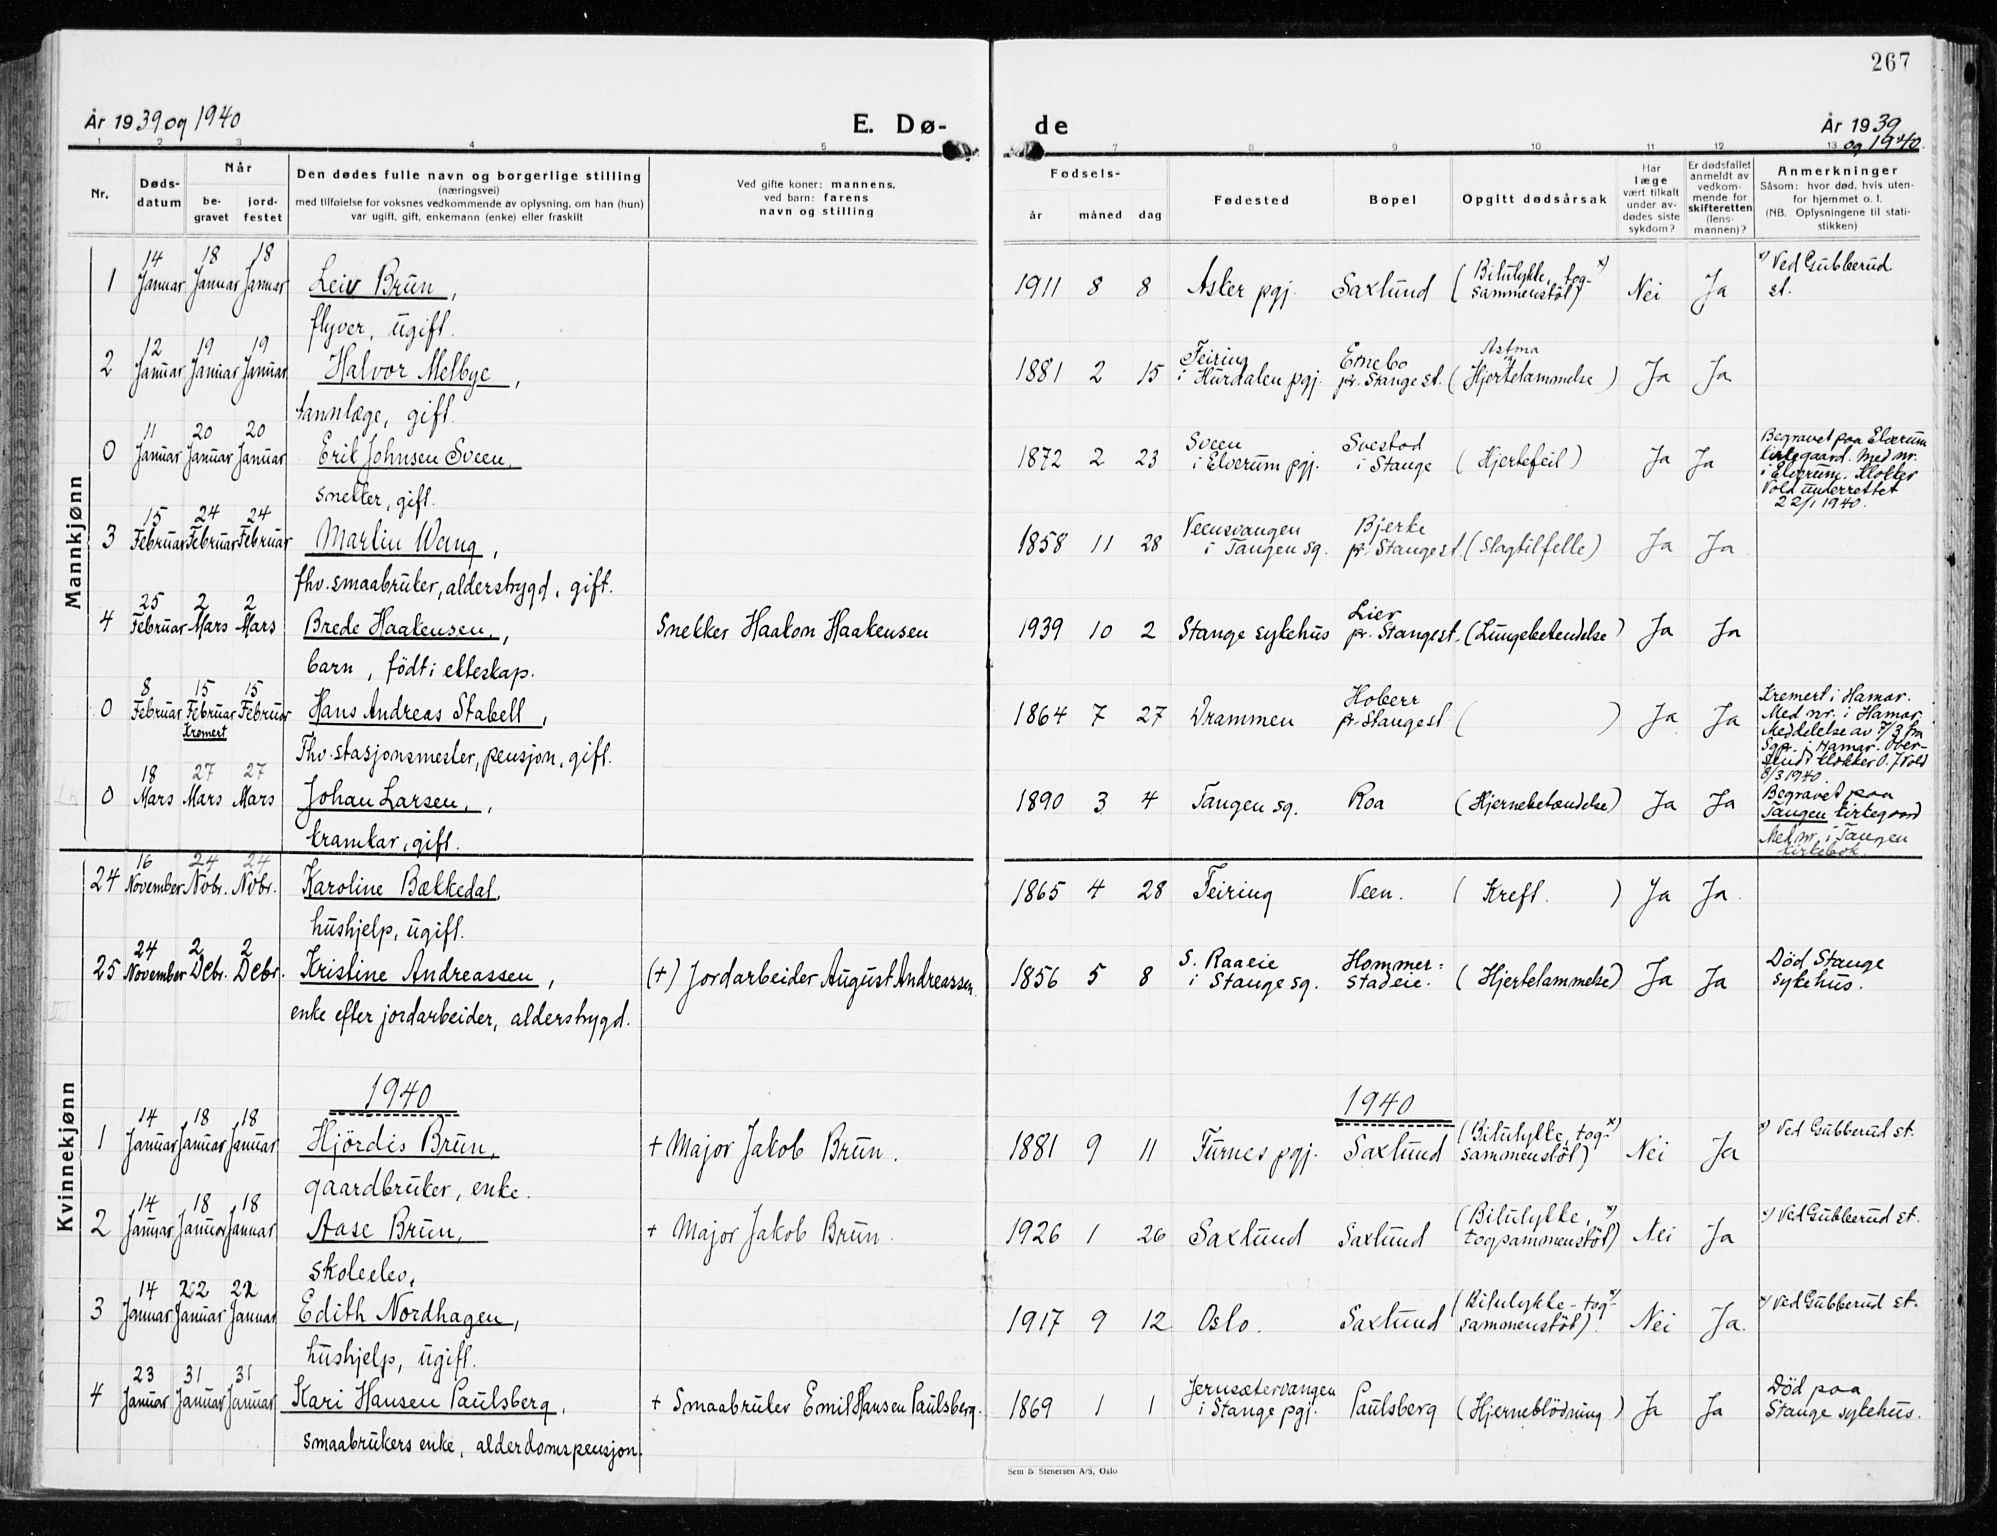 267
År 1939 og 1940
E. Dø-
de
År 1939
og 1940.
1 2 3 4 5 7 8 9 10 11 12 13
Nr.
Døds-
datum
Når
be-
gravet
jord-
festet
Den dødes fulle navn og borgerlige stilling
(næringsvei)
med tilføielse for voksnes vedkommende av oplysning, om han (hun)
var ugift, gift, enkemann (enke) eller fraskilt
Ved gifte koner: mannens,
ved barn: farens
navn og stilling
Fødsels-
år måned dag
Fødested
Bopel
Opgitt dødsårsak
Har
læge
vært tilkalt
under av-
dødes siste
sykdom?
Er dødsfallet
anmeldt av
vedkom-
mende for
skifteretten
(lens-
mannen)?
Anmerkninger
Såsom: hvor død, hvis uten-
for hjemmet o. l.
(NB. Oplysningene til stati-
stikken)
Mannkjønn
14 18 18
1 Januar Januar Januar Leiv Brun, 1911 8 8 Asker pgj. Saxlund (Bilulykke, tog- x)
sammenstöt) Nei Ja x) Ved Gubberud
st.
flyver, ugift.
12 19 19
2 Januar Januar Januar Halvor Melbye, 1881 2 15 Feiring
i Hurdalen pgj. Ernebo
pr. Stange st. Astma
(Hjertelammelse) Ja Ja
tannlæge, gift.
11 20 20
0 Januar Januar Januar Erik Johnsen Sveen. 1872 2 23 Sveen
i Elverum pgj. Svestad
i Stange (Hjertefeil) Ja Ja Begravet paa Elverum
kirkegaard. Med nr.
i Elverum. Klokker
Vold underrettet
22/1 1940.
snekker, gift.
15 24 24
3 Februar Februar Februar Martin Wang, 1858 11 28 Veensvangen
i Tangen sg. Bjerke
pr. Stange st. (Slagtilfelle) Ja Ja
fhv. smaabruker, alderstrygd, gift.
25 2 2
4 Februar Mars Mars Brede Haakensen, Snekker Haakon Haakensen 1939 10 2 Stange sykehus Lier
pr. Stange st. (Lungebetendelse) Ja Ja
barn, födt i ekteskap.
8 15 15
0 Februar Februar Februar Hans Andreas Stabell, 1864 7 27 Drammen Hoberr
pr. Stange st ( ) Ja Ja Kremert i Hamar.
Med nr. i Hamar.
Meddelelse av 7/3 fra
Sgpr. i Hamar. Over-
sendt klokker O. J. Vold
8/3 1940.
Kremert
Fhv. stasjonsmester, pensjon, gift.
18 27 27
0 Mars Mars Mars Johan Larsen, 1890 3 4 Tangen sg. Roa (Hjernebetændelse) Ja Ja Begravet paa
Tangen kirkegaard
Med nr. i Tangen
kirkebok.
kramkar, gift.
Kvinnekjønn
16 24 24
24 November Novbr. Novbr. Karoline Bækkedal, 1865 4 28 Feiring Veen. (Kreft.) Ja Ja.
hushjelp, ugift.
24 2 2
25 November Debr. Debr. Kristine Andreassen, (+) Jordarbeider August Andreassen 1856 5 8 S. Raaeie
i Stange sg. Hommer=
stadeie. (Hjertelammelse) Ja Ja Död Stange
sykehus.
enke efter jordarbeider, alderstrygd.
1940
1940
14 18 18
1 Januar Januar Januar Hjördis Brun, + Major Jakob Brun. 1881 9 11 Furnes pgj. Saxlund (Bilulykke, tog- x)
sammenstöt) Nei Ja x) Ved Gubberud st.
gaardbruker, enke.
14 18 18
2 Januar Januar Januar Aase Brun, + Major Jakob Brun. 1926 1 26 Saxlund Saxlund (Bilulykke, x)
togsammenstöt) Nei Ja x) Ved Gubberud st.
skoleelev.
14 22 22
3 Januar Januar Januar Edith Nordhagen, 1917 9 12 Oslo. Saxlund (Bilulykke - tog- x)
sammenstöt). Nei Ja. x) Ved Gubberud st.
hushjelp, ugift.
23 31 31
4 Januar Januar Januar Kari Hansen Paulsberg, + Smaabruker Emil Hansen Paulsberg. 1869 1 1 Jerusætervangen
i Stange pgj. Paulsberg (Hjerneblödning) Ja Ja Död paa
Stange sykehus.
smaabrukers enke, alderdomspensjon.
Sem & Stenersen A/S, Oslo